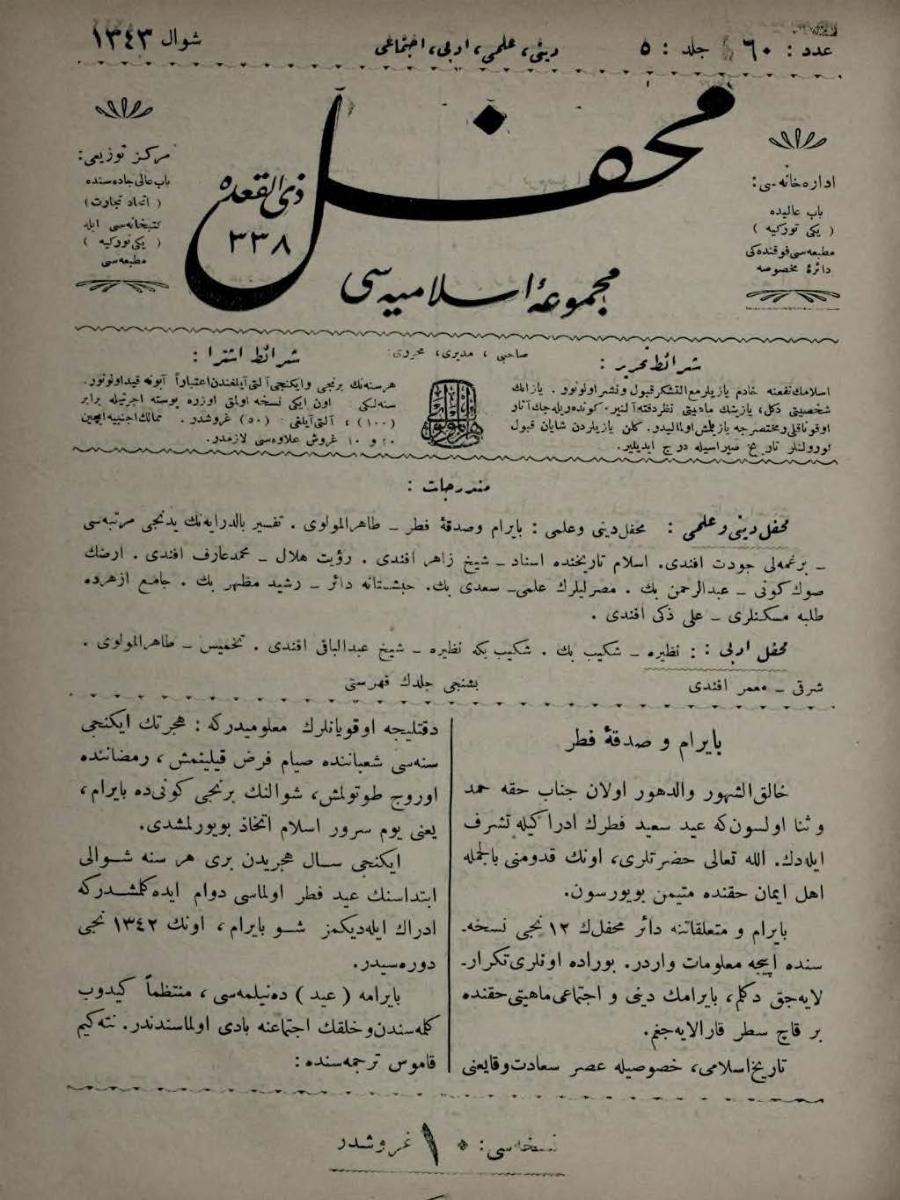 عدد : ٦٠ جلد : ٥
دینی، علمی، ادبی، اجتماعی
شوال ١٣٤٣
محفل
ذی القعده
٣٣٨
مجموعهٔ اسلامیه‌سی
اداره‌خانه‌سی:
باب عالیده
( یکی تورکیه )
مطبعه‌سی فوقنده‌کی
دائرهٔ مخصوصه
مرکز توزیعی:
باب عالی جاده‌سنده
( اتحاد تجارت )
کتبخانه‌سی ایله
( یکی تورکیه )
مطبعه‌سی
شرائط تحریر :
اسلامك نفعنه خادم یازیلر مع التشکر قبول و نشر اولونور. یازانك
شخصیتی دکل، یازینك مادیتی نظر دقته آلنیر. کوندریله‌جك آثار
اوقوناقلی و مختصرجه یازیلمش اولمالیدر. کلن یازیلردن شایان قبول
کورولنلر تاریخ صیراسیله درج ایدیلیر.
صاحبی ، مدیری، محرری:
طاهر المولوی
شرائط اشترا :
هر سنه‌نك برنجی و ایکنجی آلتی آیلغندن اعتباراً آبونه قید اولونور.
سنه‌لکی : اون ایکی نسخه اولمق اوزره پوسته اجرتیله برابر
(١٠٠) ، آلتی آیلغی : (٥٠) غروشدر. ممالك اجنبیه ایچین
٢٠ و ١٠ غروش علاوه‌سی لازمدر.
مندرجات :
محفل دینی و علمی : محفل دینی وعلمی : بایرام وصدقهٔ فطر ـ طاهر المولوی . تفسیر بالدرایه‌نك یدنجی مرتبه‌سی
ـ برغمه‌لی جودت افندی. اسلام تاریخنده اسناد ـ شیخ زاهر افندی . رؤیت هلال ـ محمد عارف افندی . ارضك
صوك کونی ـ عبدالرحمن بك . مصرلیلرك علمی ـ سعدی بك. حبشستانه دائر ـ رشید مظهر بك . جامع ازهرده
طلبه مسکنلری ـ علی ذکی افندی .
محفل ادبی : : نظیره ـ شکیب بك . شکیب بکه نظیره ـ شیخ عبدالباقی افندی . تخمیس ـ طاهر المولوی .
شرقی ـ معمر افندی بشنجی جلدك فهرستی
بایرام و صدقهٔ فطر
خالق الشهور والدهور اولان جناب حقه حمد
و ثنا اولسون که عید سعید فطرك ادراکیله تشرف
ایله‌دك. الله تعالی حضرتلری، اونك قدومنی بالجمله
اهل ایمان حقنده متیمن بویورسون.
بایرام و متعلقاتنه دائر محفلك ١٢ نجی نسخه‌ـ
سنده اپیجه معلومات واردر. بوراده اونلری تکرارـ
لایه‌جق دکلم، بایرامك دینی و اجتماعی ماهیتی حقنده
بر قاچ سطر قارالایه‌جغم.
تاریخ اسلامی، خصوصیله عصر سعادت وقایعنی
دقتلیجه اوقویانلرك معلومیدرکه : هجرتك ایکنجی
سنه‌سی شعباننده صیام فرض قیلینمش ، رمضاننده
اوروج طوتولمش، شوالك برنجی کونی ده بایرام،
یعنی یوم سرور اسلام اتخاذ بویورلمشدی.
ایکنجی سال هجریدن بری هر سنه شوالی
ابتداسنك عید فطر اولماسی دوام ایده‌کلمشدرکه
ادراك ایله‌دیکمز شو بایرام ، اونك ١٣٤٢ نجی
دوره‌سیدر.
بایرامه ( عید ) ده‌نیلمه‌سی ، منتظماً کیدوب
کله‌سندن و خلقك اجتماعنه بادی اولماسندندر. نته‌کیم
قاموس ترجمه‌سنده :
نسخه‌سی : ١٠ غروشدر